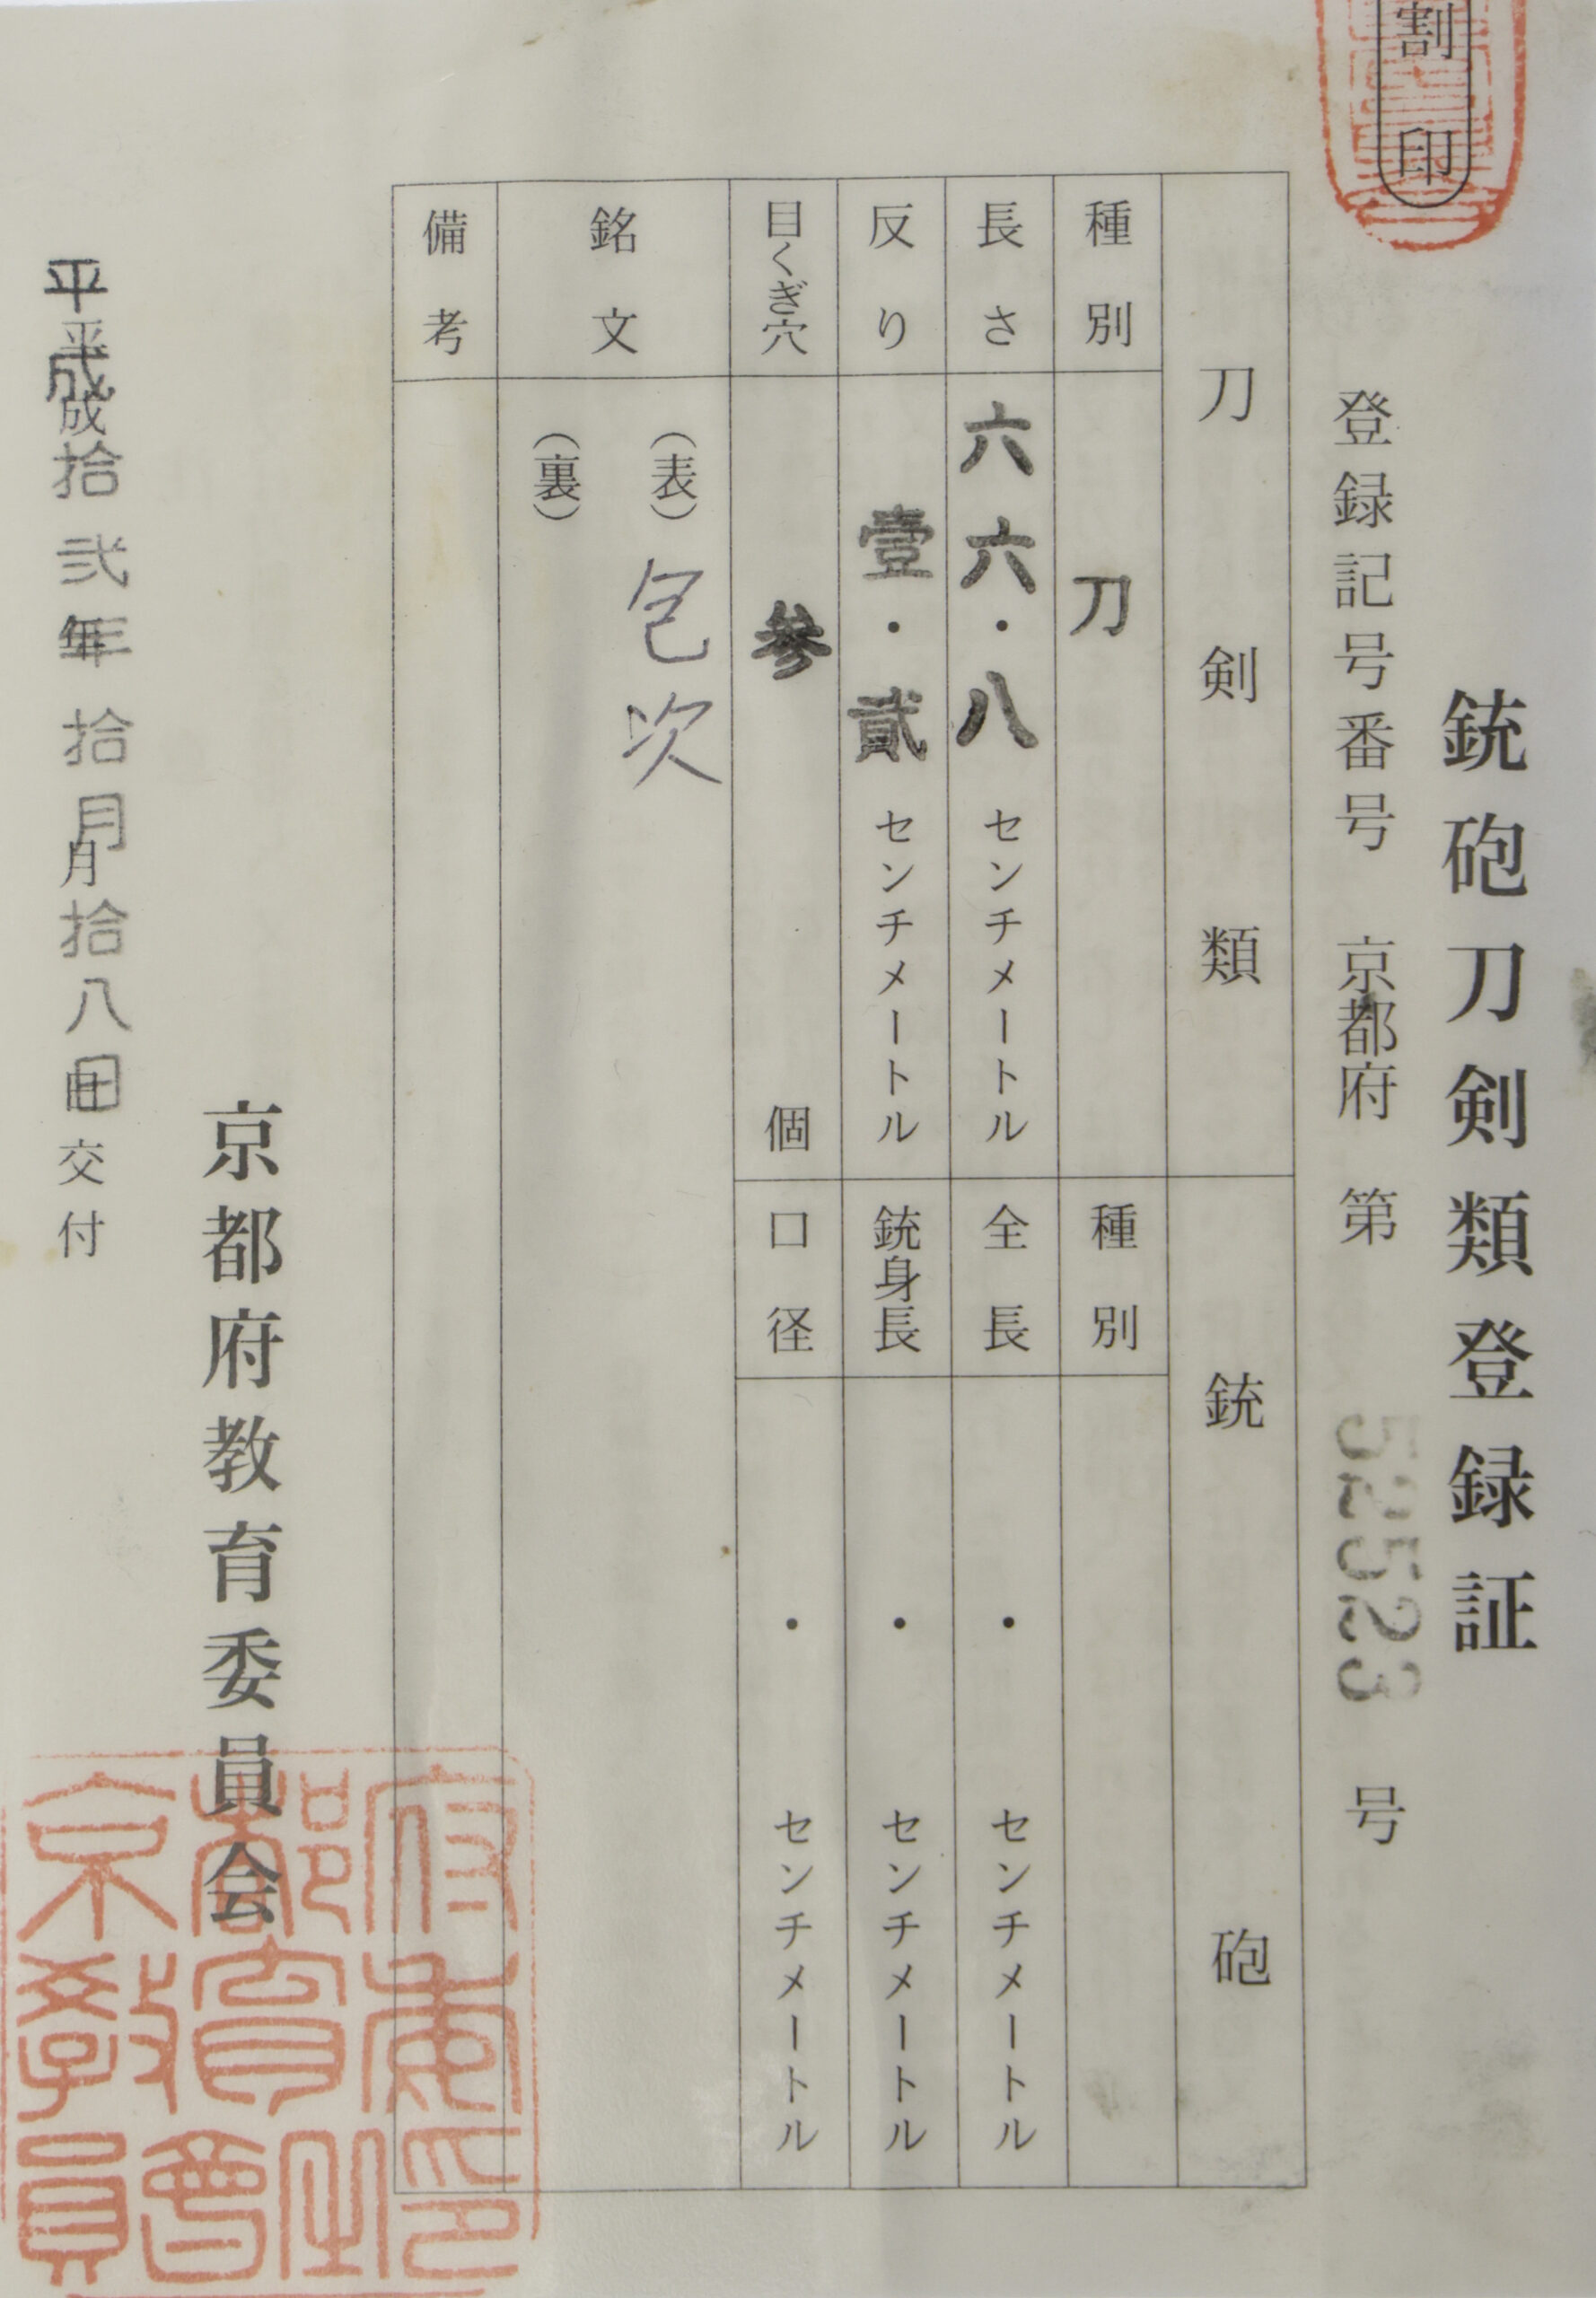 割印
銃砲刀剣類登録証
登録記号番号 京都府 第 52523 号
刀剣類
銃砲
種別 刀
種別
長さ 六六・八 センチメートル
全長 ・ センチメートル
反り 壹・貳 センチメートル
銃身長 ・ センチメートル
目くぎ穴 参 個
口径 ・ センチメートル
銘文 (表) 包次
(裏)
備考
京都府教育委員会
平成拾弐年拾月拾八日交付